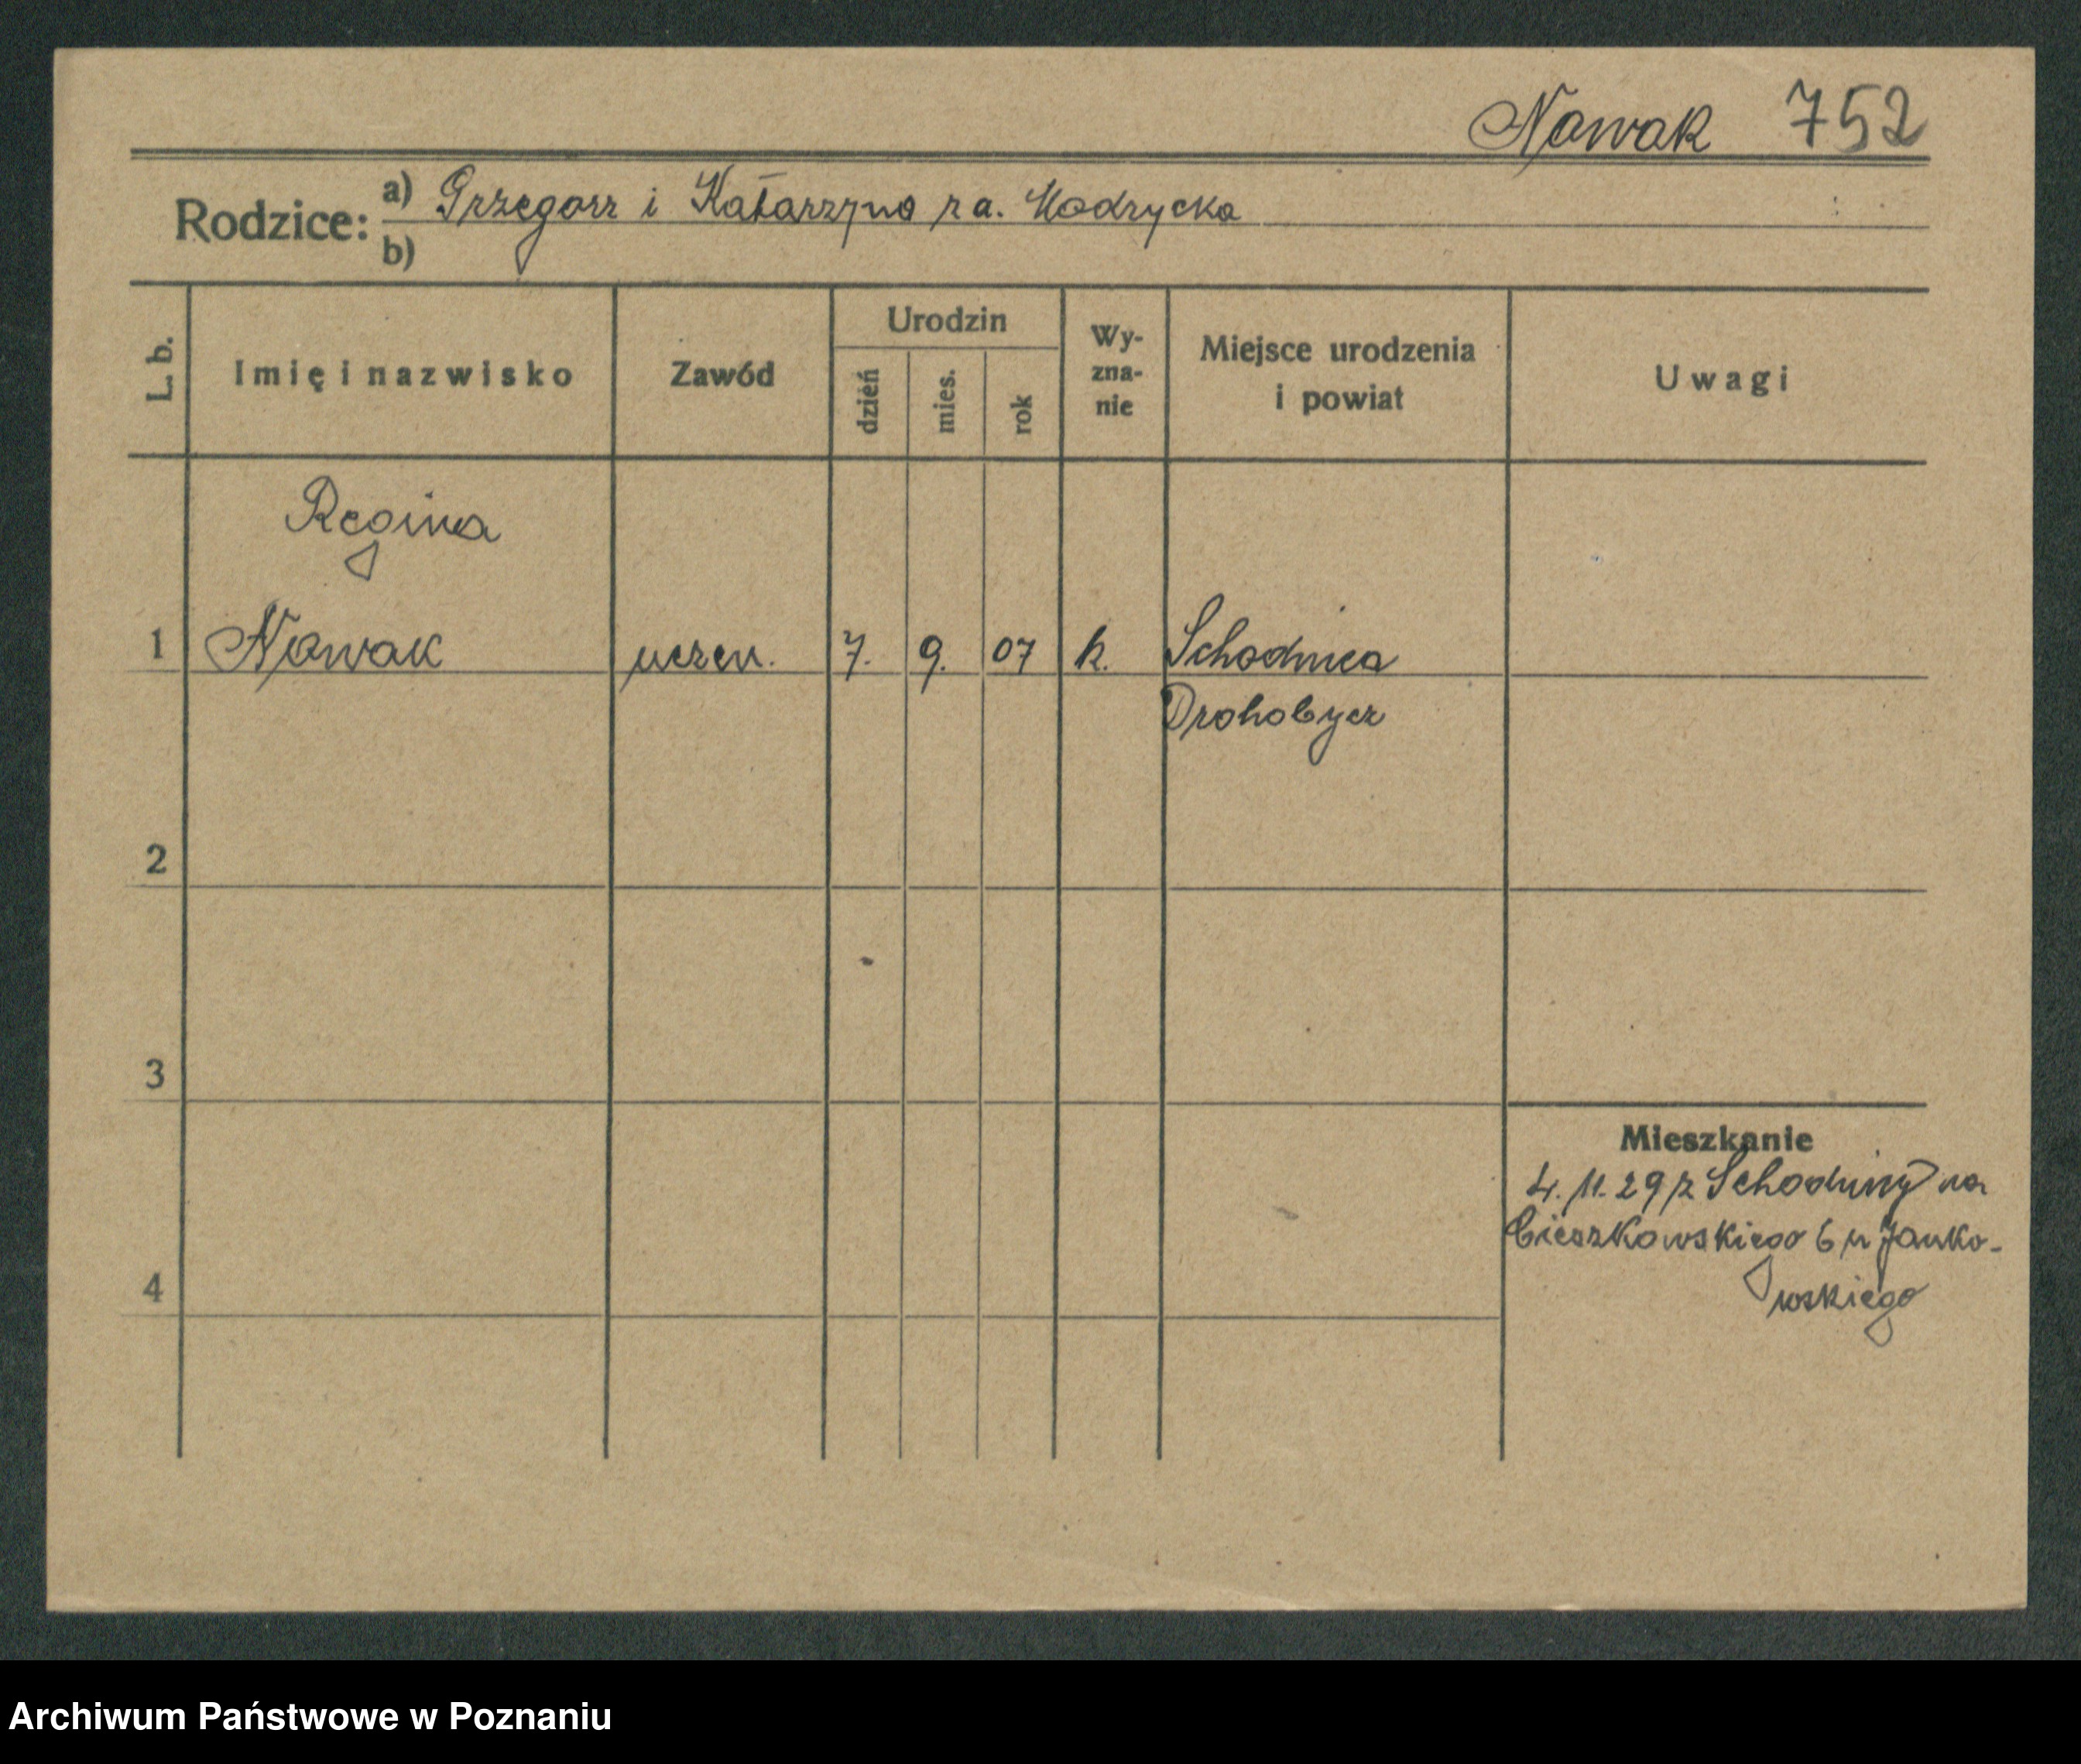 Nowak 752
Rodzice: a) Grzegorz i Katarzyna z d. Modrycka
b)
L. b. Imię i nazwisko Zawód Urodzin dzień mies. rok Wy-zna-nie Miejsce urodzenia i powiat Uwagi
Regina
1 Nowak uczen. 7. 9. 07 k. Schodnica
Drohobycz
2
3
Mieszkanie
4. 11. 29 z Schodnicy na
Cieszkowskiego 6 u Janko-
wskiego
4
Archiwum Państwowe w Poznaniu